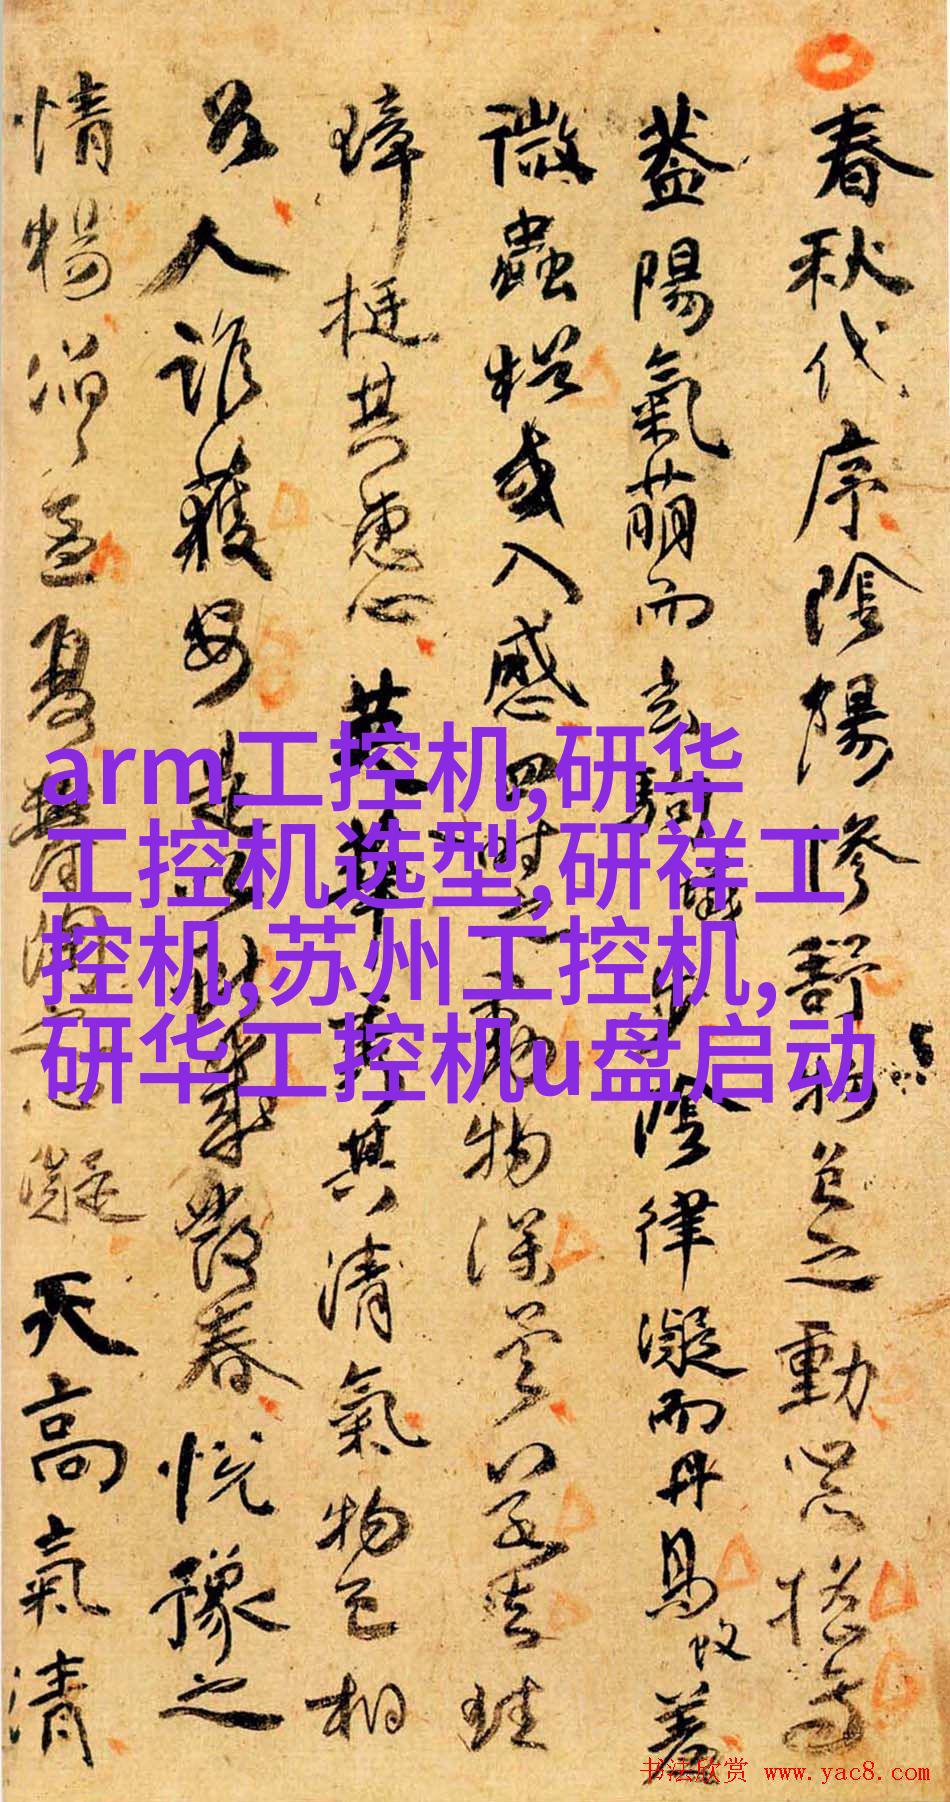 春秋代序陰陽慘舒物色之動心亦搖焉
蓋陽氣萌而玄駒步陰律凝而丹鳥羞
微蟲猶或入感四時之動物深矣若夫珪
璋挺其惠心英華秀其清氣物色相
召人誰獲安是以獻歲發春悅豫之
情暢滔滔孟夏鬱陶之心凝天高氣清
arm工控机,研华
工控机选型,研祥工
控机,苏州工控机,
研华工控机u盘启动
书法欣赏 www.yac8.com